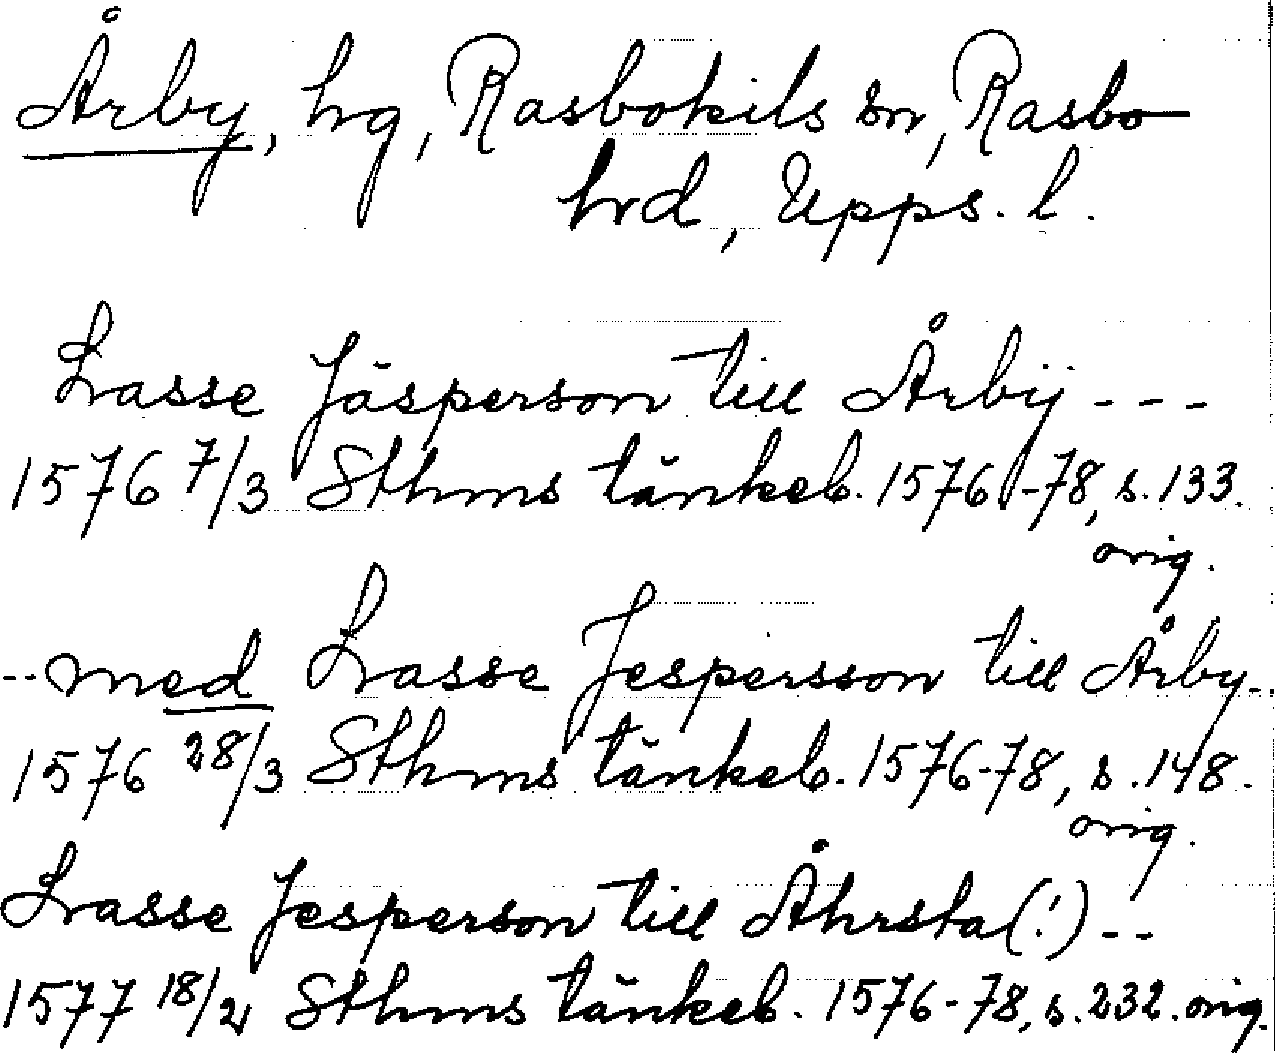 Årby, hg, Rasbokils sn, Rasbo
hrd, Upps. l.
Lasse Jäsperson till Årbÿ - - -
1576 7/3 Sthms tänkeb. 1576-78, s. 133.
orig.
-- med Lasse Jespersson till Årby --
1576 28/3 Sthms tänkeb. 1576-78, s. 148.
orig.
Lasse Jesperson till Åhrsta (!) --
1577 18/2 Sthms tänkeb. 1576-78, s. 232. orig.